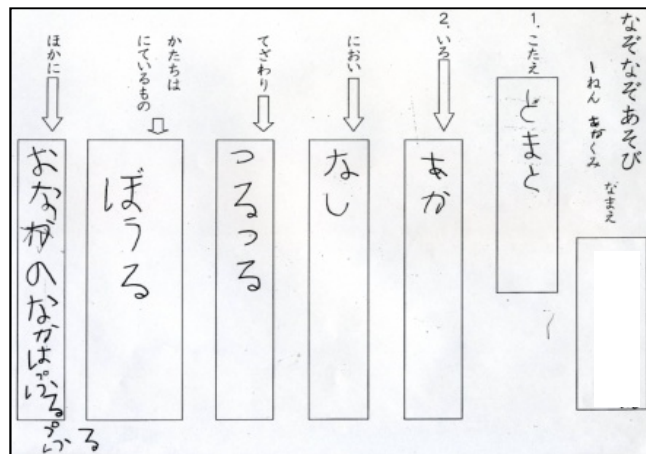 なぞなぞあそび
一ねん あかくみ
なまえ
1. こたえ
とまと
2. いろ
あか
におい
なし
てざわり
つるつる
かたちは
にているもの
ぼうる
ほかに
おなかのなかはぷる
ぷる